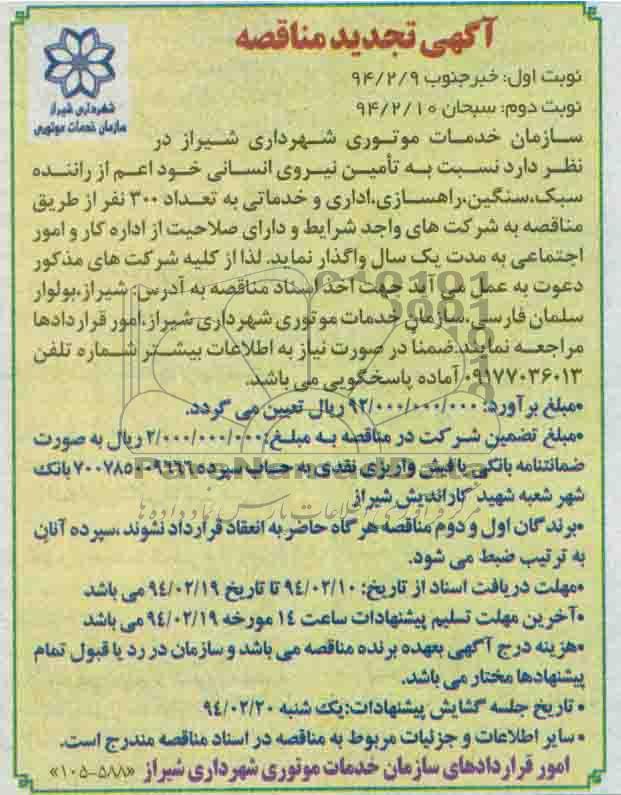 آگهی تجدید مناقصه
نوبت اول: خبرجنوب ۹۴/۲/۹
نوبت دوم: سبحان ۹۴/۲/۱۰
شهرداری شیراز
سازمان خدمات موتوری
سازمان خدمات موتوری شهرداری شیراز در
نظر دارد نسبت به تأمین نیروی انسانی خود اعم از راننده
سبک،سنگین،راهسازی،اداری و خدماتی به تعداد ۳۰۰ نفر از طریق
مناقصه به شرکت های واجد شرایط و دارای صلاحیت از اداره کار و امور
اجتماعی به مدت یک سال واگذار نماید. لذا از کلیه شرکت های مذکور
دعوت به عمل می آید جهت اخذ اسناد مناقصه به آدرس: شیراز،بولوار
سلمان فارسی،سازمان خدمات موتوری شهرداری شیراز،امور قراردادها
مراجعه نمایند.ضمناً در صورت نیاز به اطلاعات بیشتر شماره تلفن
۰۹۱۷۷۰۳۶۰۱۳ آماده پاسخگویی می باشد.
•مبلغ برآورد: ۹۲/۰۰۰/۰۰۰/۰۰۰ ریال تعیین می گردد.
•مبلغ تضمین شرکت در مناقصه به مبلغ:۲/۰۰۰/۰۰۰/۰۰۰ ریال به صورت
ضمانتنامه بانکی یا فیش واریزی نقدی به حساب سپرده ۷۰۰۷۸۵۰۰۹۶۶۶ بانک
شهر شعبه شهید کاراندیش شیراز
•برندگان اول و دوم مناقصه هر گاه حاضر به انعقاد قرارداد نشوند ،سپرده آنان
به ترتیب ضبط می شود.
•مهلت دریافت اسناد از تاریخ: ۹۴/۰۲/۱۰ تا تاریخ ۹۴/۰۲/۱۹ می باشد
•آخرین مهلت تسلیم پیشنهادات ساعت ۱۴ مورخه ۹۴/۰۲/۱۹ می باشد
•هزینه درج آگهی بعهده برنده مناقصه می باشد و سازمان در رد یا قبول تمام
پیشنهادها مختار می باشد.
• تاریخ جلسه گشایش پیشنهادات:یک شنبه ۹۴/۰۲/۲۰
• سایر اطلاعات و جزئیات مربوط به مناقصه در اسناد مناقصه مندرج است.
امور قراردادهای سازمان خدمات موتوری شهرداری شیراز «۵۸۸-۱۰۵»